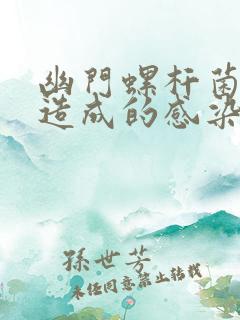 幽門螺杆菌
造成的感染
孫世芳
未经同意禁止转载